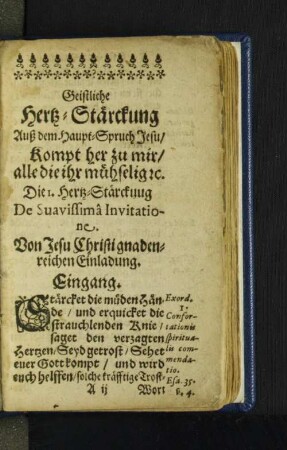 Geistliche
Hertz-Stärckung
Auß dem Haupt-Spruch Jesu/
Kompt her zu mir/
alle die ihr mühselig ꝛc.
Die 1. Hertz-Stärckuug
De Suavissimâ Invitatio-
ne.
Von Jesu Christi gnaden-
reichen Einladung.
Eingang.
Stärcket die müden Hän-
de/ und erquicket die
strauchlenden Knie/
saget den verzagten
Hertzen/ Seyd getrost/ Sehet
euer Gott kompt/ und wird
euch helffen/ solche kräfftige Trost-
A ij Wort
Exord.
Confor-
tationis
spiritua-
lis com-
menda-
tio.
Esa. 35.
v. 4.